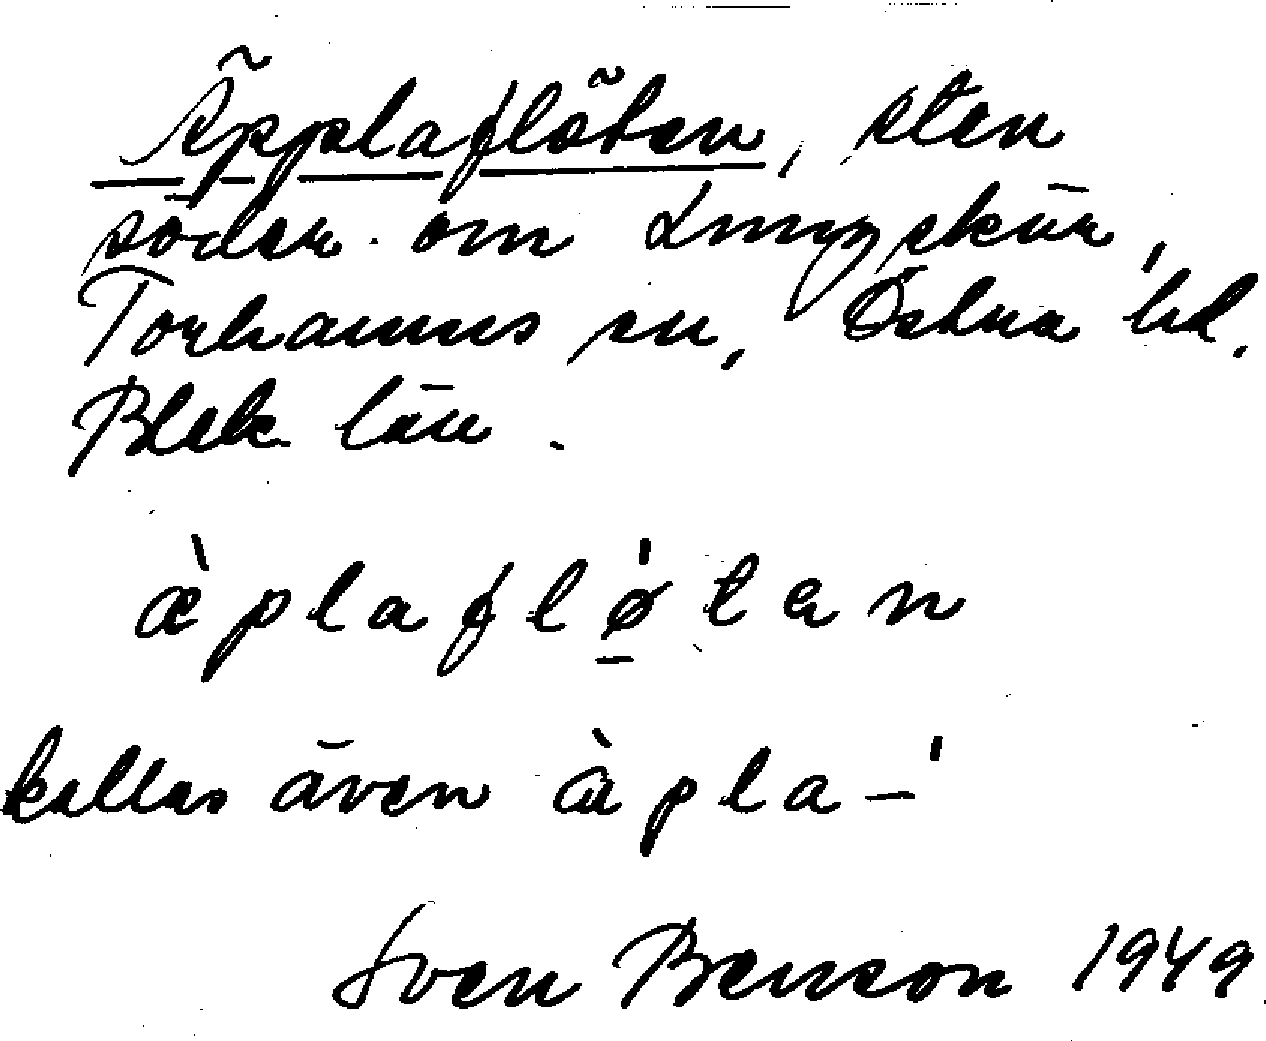 Äpplaflöten, sten
söder om Smygskär,
Torhamns sn, Östra hd.
Blek. län.
æ̀plafl ǿ̱ tɐn
kallas även àpla-́
Sven Benson 1949